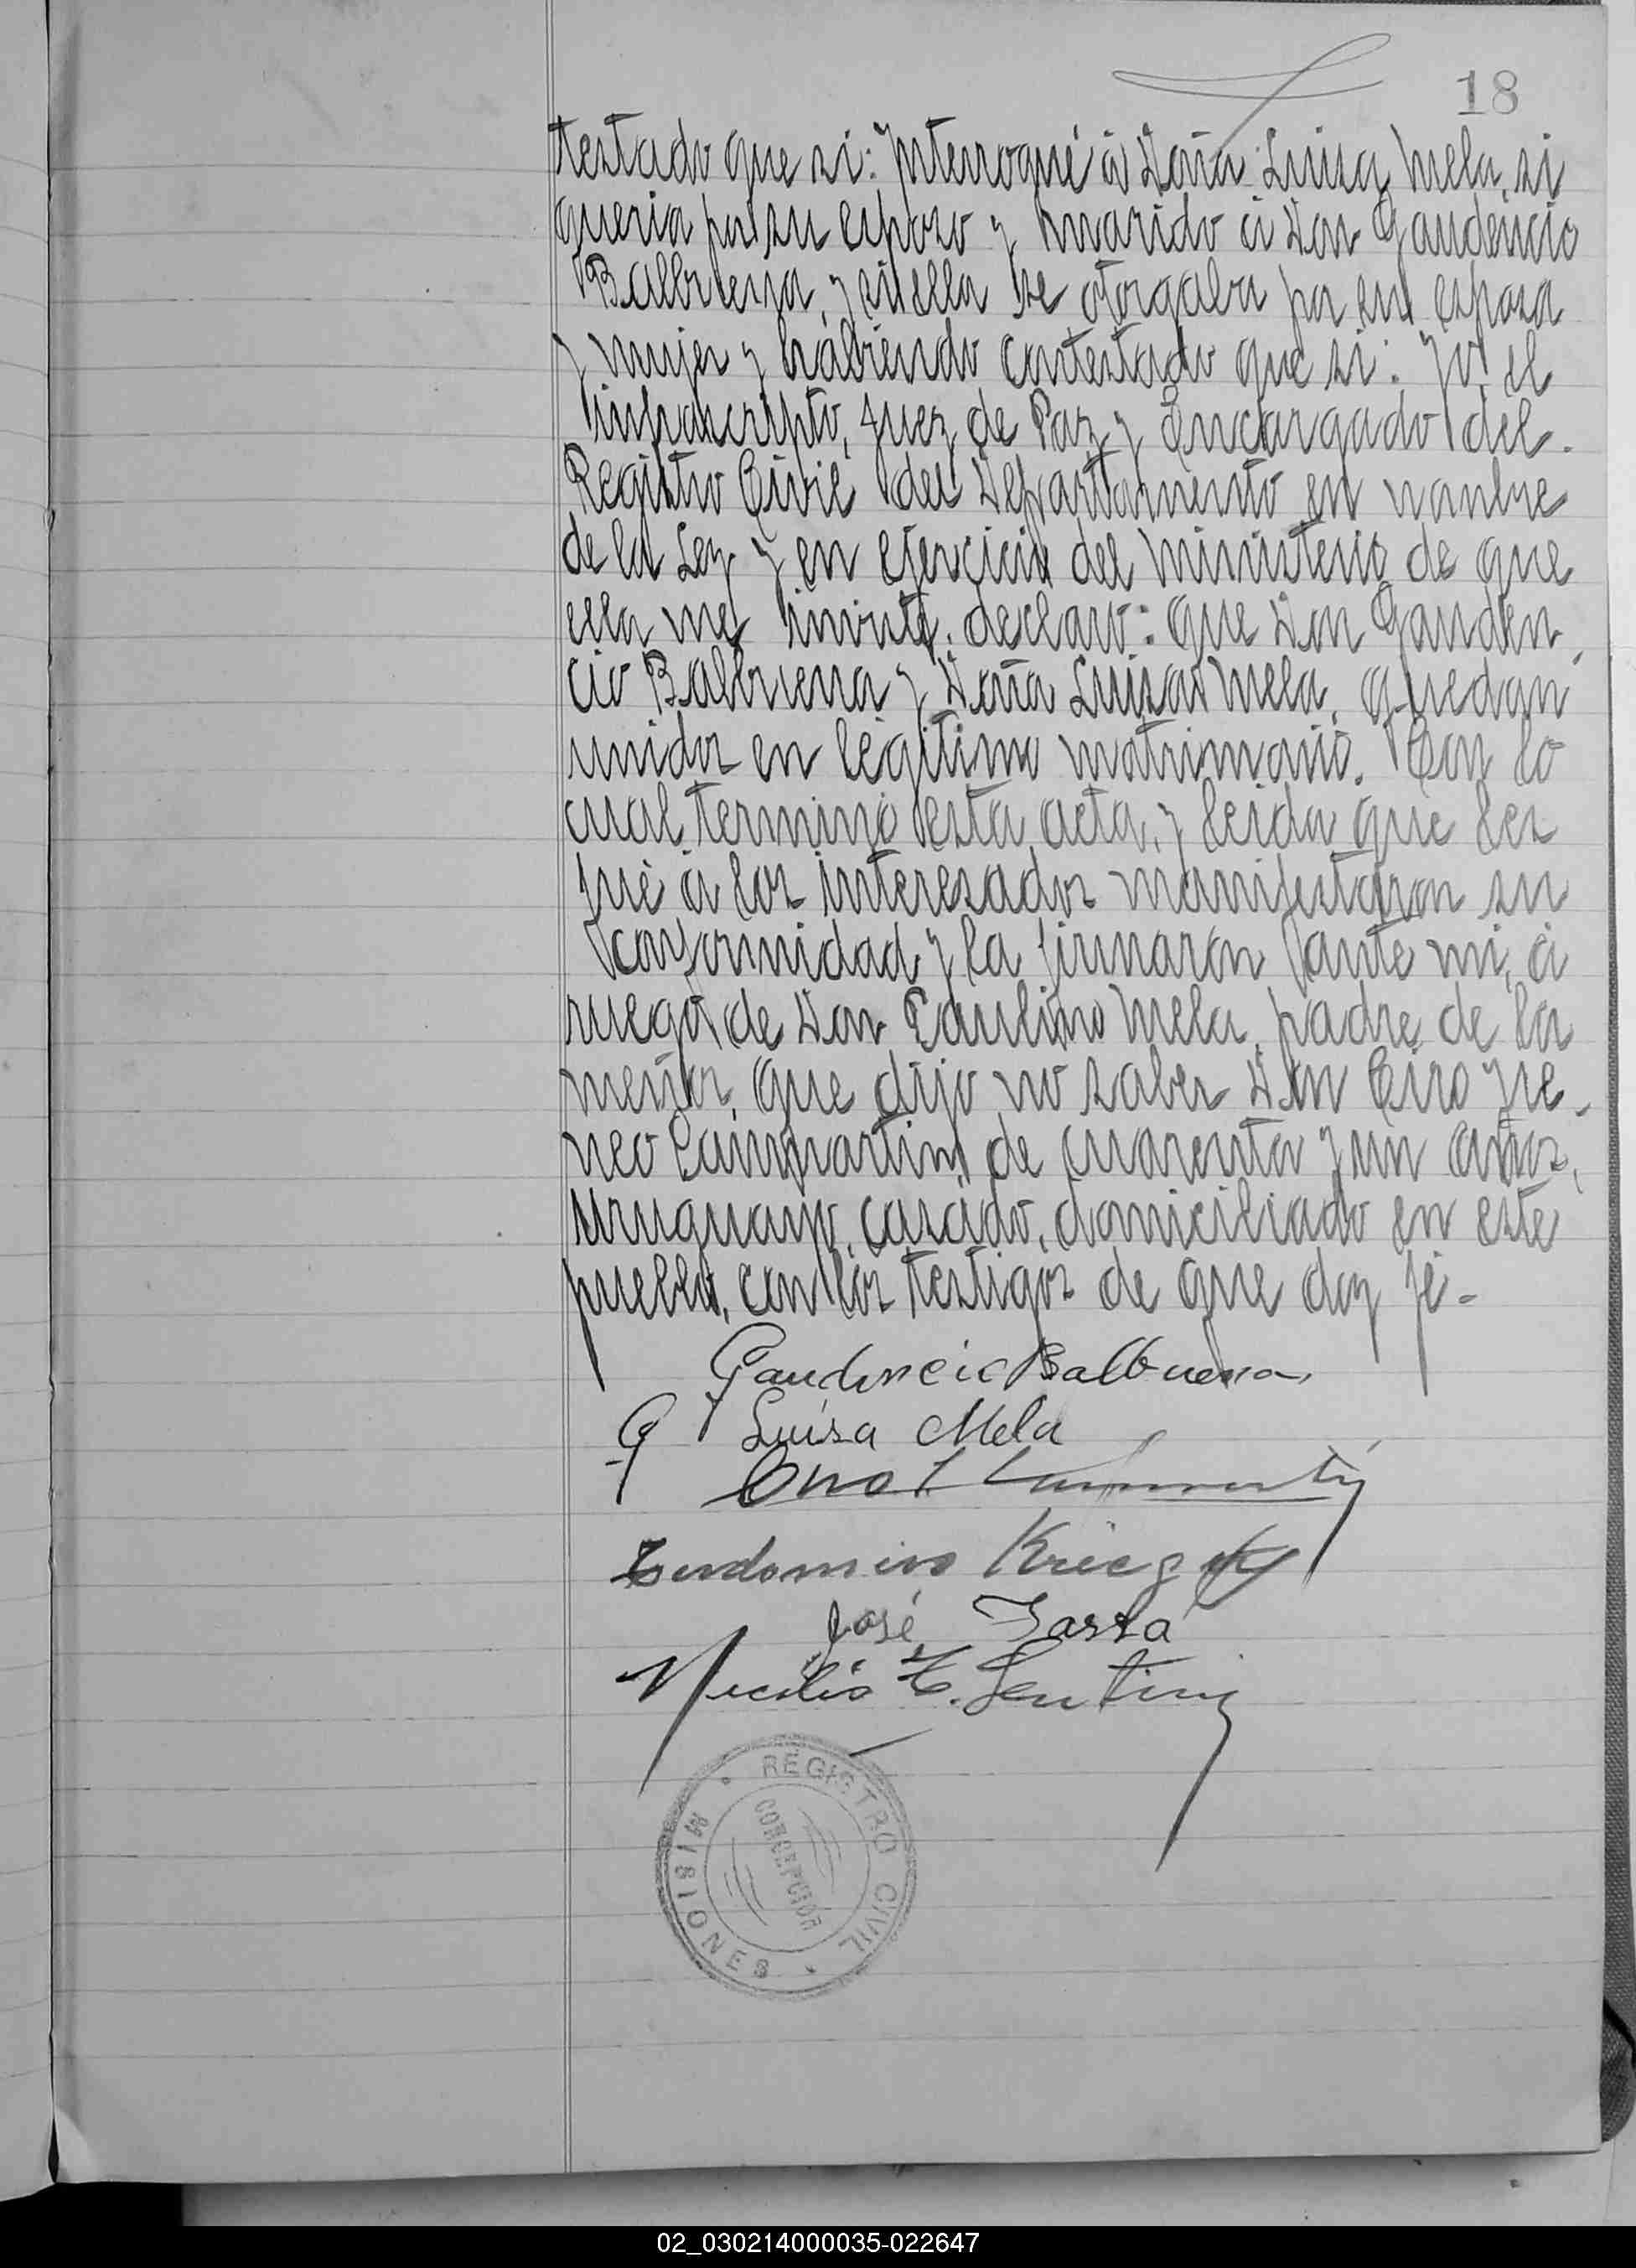 18
testado que si: Interrogué á Doña Luisa Mela, si
queria por su esposo y marido á Don Gaudencio
Balbuena, y si ella se otorgaba por su esposa
y mujer y habiendo contestado que si: Yo, el
infrascripto, Juez de Paz y Encargado del
Registro Civil del Departamento en nombre
de la Ley y en ejercicio del ministerio de que
ella me inviste, declaro: que Don Gauden
cio Balbuena y Doña Luisa Mela, quedan
unidos en legitimo matrimonio. Con lo
cual terminó esta acta, y leida que les
fué á los interesados manifestaron su
conformidad y la firmaron ante mi, á
ruego de Don Paulino Mela, padre de la
menor, que dijo no saber Don Ciro Yre-
neo Lammartin, de cuarenta y un años,
Uruguayo, casado, domiciliado en este
pueblo, con los testigos de que doy fé-
Gaudencio Balbuena
Luisa Mela
Ciro
José
REGISTRO CIVIL
CONCEPCION
MISIONES
02_030214000035-022647